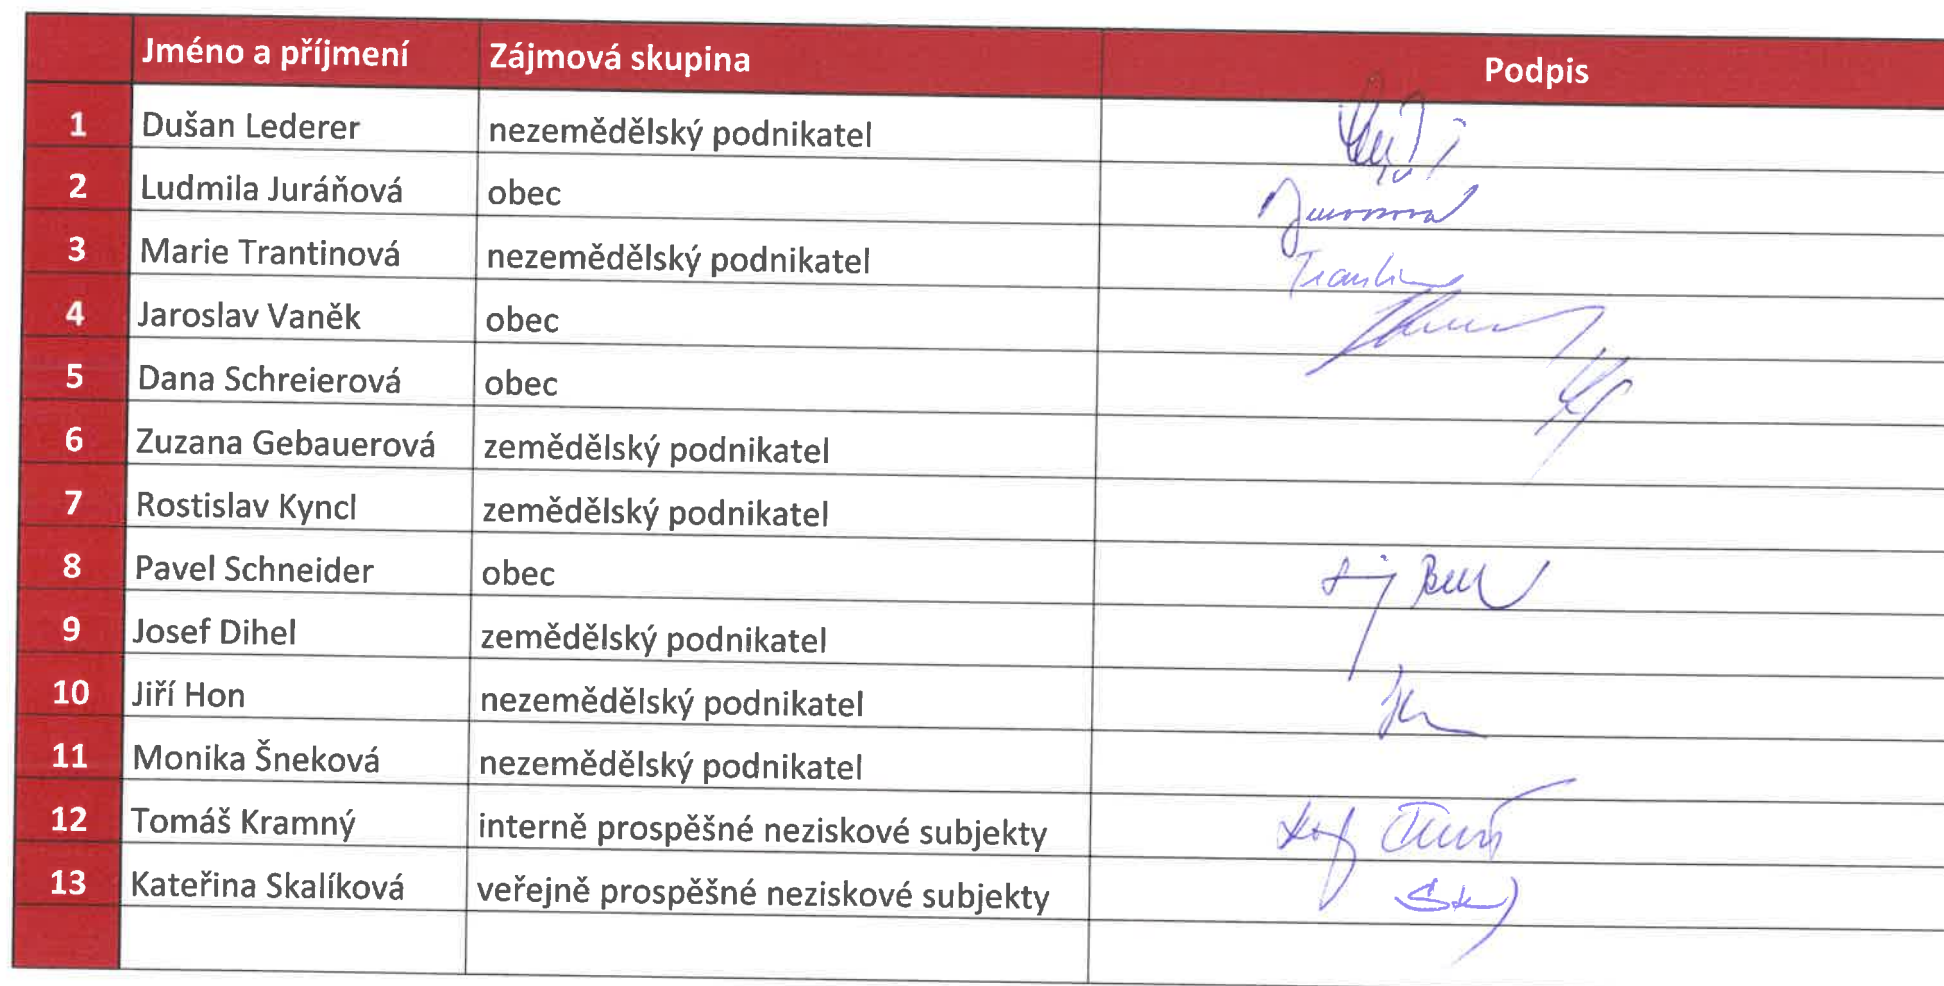 Jméno a příjmení Zájmová skupina Podpis
1 Dušan Lederer nezemědělský podnikatel
2 Ludmila Juráňová obec
3 Marie Trantinová nezemědělský podnikatel
4 Jaroslav Vaněk obec
5 Dana Schreierová obec
6 Zuzana Gebauerová zemědělský podnikatel
7 Rostislav Kyncl zemědělský podnikatel
8 Pavel Schneider obec
9 Josef Dihel zemědělský podnikatel
10 Jiří Hon nezemědělský podnikatel
11 Monika Šneková nezemědělský podnikatel
12 Tomáš Kramný interně prospěšné neziskové subjekty
13 Kateřina Skalíková veřejně prospěšné neziskové subjekty